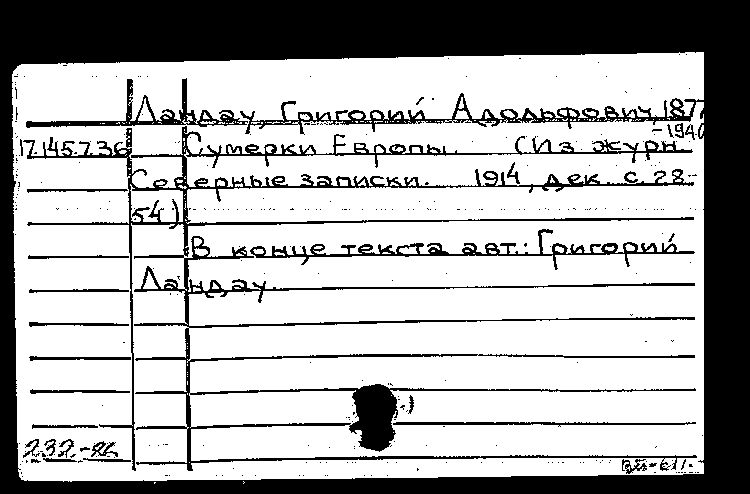 Ландау, Григорий Адольфович, 1877
-1940
17.145.7.36 Сумерки Европы. (Из журн.
Северные записки. 1914, дек. с. 28-
54)
В конце текста авт.: Григорий
Ландау.